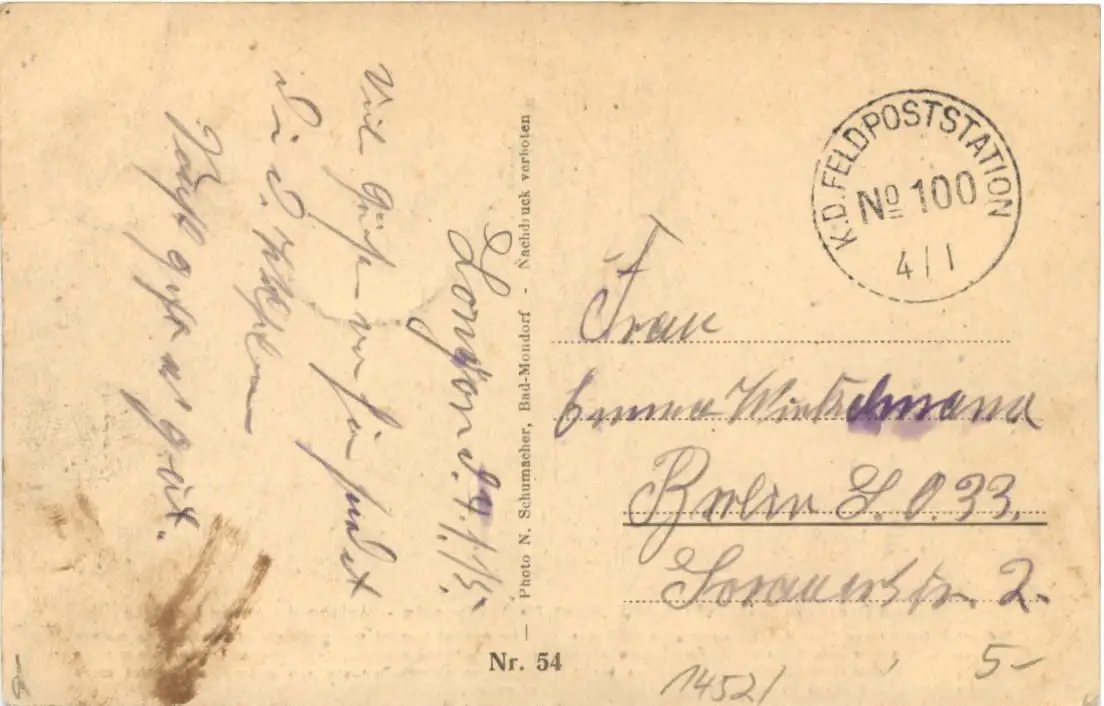 Longwy d. 4.1.15.
Viel Grüße von hier sendet
Dir d.
geht es gut.
Photo N. Schumacher, Bad-Mondorf - Nachdruck verboten
Nr. 54
K.D. FELDPOSTSTATION
No 100
4/1
Frau
Emma
Berlin S.O.33.
Sorauerstr. 2.
14521
5-